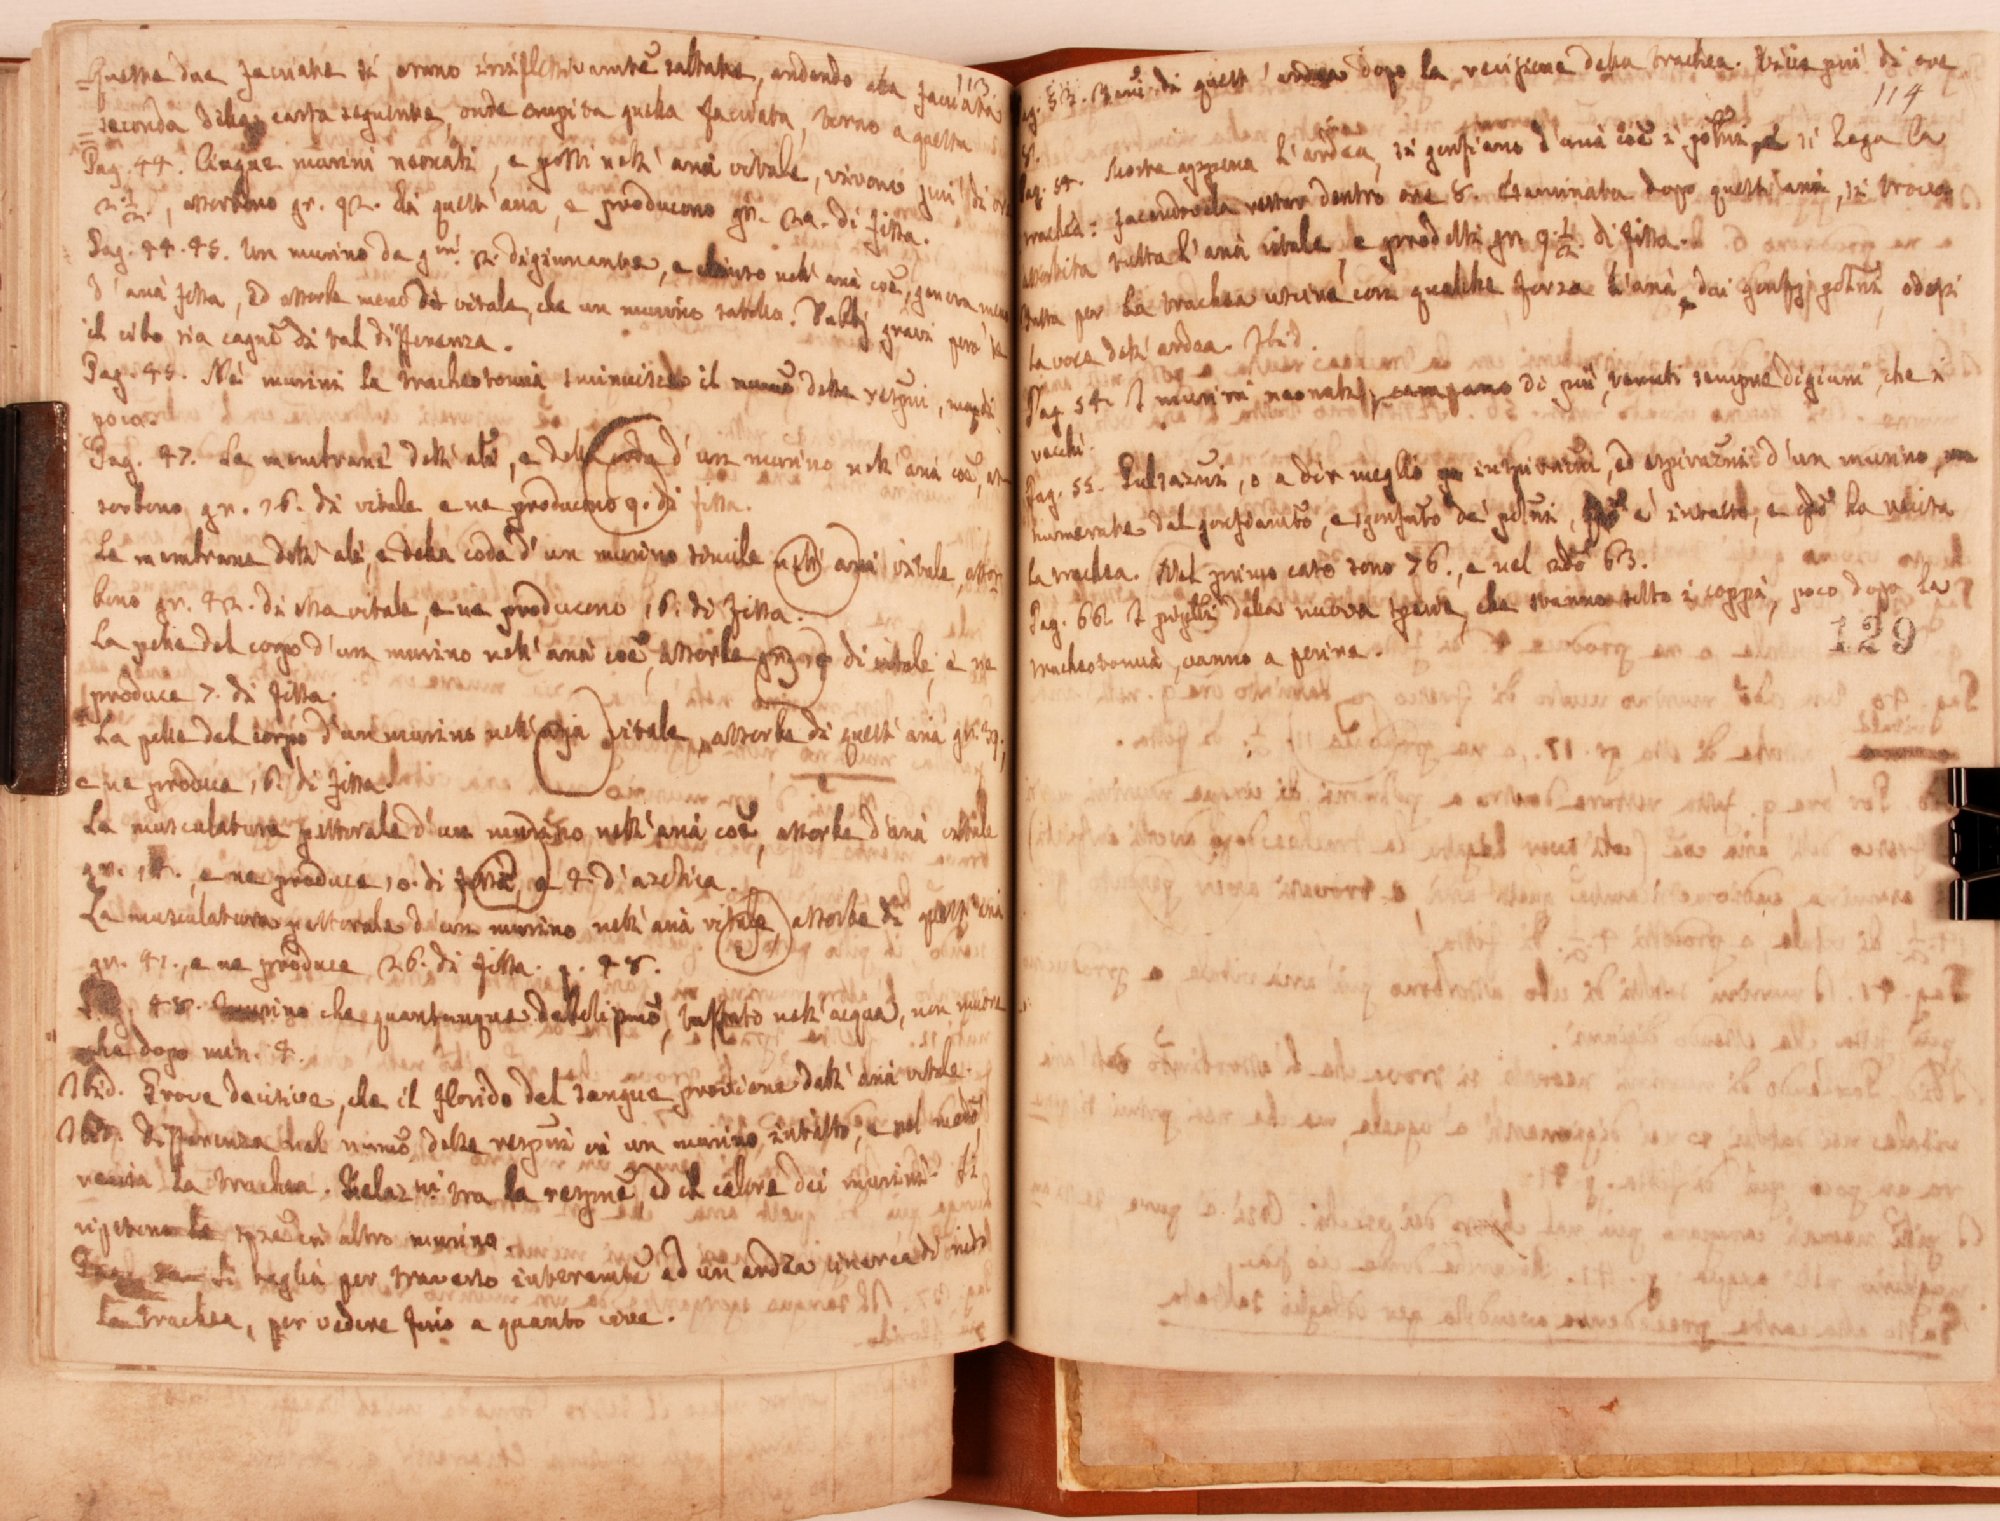 113.
Queste due facciate si erano irriflettivamte saltate, andando alla facciata
seconda della carta seguente, onde empita quella facciata, torno a questa
Pag. 44. Cinque murini neonati, e posti nell' aria vitale, vivono piu di ore
2. 1/2., assorbono gr. 42. di quest' aria, e producono gr. 22. di fissa.
Pag. 44. 45. Un murino da gni. 2. digiunante, e chiuso nell' aria coe, genera meno
d' aria fissa, ed assorbe meno di vitale, che un murino satollo. Dubbj gravi pero se
il cibo sia cagne di tal differenza.
Pag. 45. Nei murini la tracheotomia sminuisce il numo delle respni, ma di
poco.
Pag. 47. La membrane dell' ali, e della coda d' un murino nell' aria coe, as-
sorbono gr. 16. di vitale e ne producono 9. di fissa.
Le membrane dell' ali, e della coda d' un murino simile nell' aria vitale, assor
bono gr. 42. di essa vitale, e ne producono 16. di fissa.
La pelle del corpo d' un murino nell' aria coe, assorbe gr. 19 di vitale, e ne
produce 7. di fissa.
La pelle del corpo d' un murino nell' aria vitale, assorbe di quest' aria gr. 39,
e ne produce 16. di fissa.
La muscolatura pettorale d' un murino nell' aria coe, assorbe d' aria vitale
gr. 18., e ne produce 10. di fissa, e 4. d' azotica.
La muscolatura pettorale d' un murino nell' aria vitale, assorbe di quest' aria
gr. 41., e ne produce 26. di fissa. p. 48.
Pag. 48. Murino che quantunque debolissmo, tuffato nell' acqua, non muore
che dopo min. 4.
Ibid. Prove decisive, che il florido del sangue proviene dall' aria vitale.
Ibid. Differenza nel numo delle respni in un murino intatto, e nel medo,
recisa la trachea. Relazni tra la respne, ed il calore dei murini. Si
ripetono le spze in altro murino.
Si taglia per traverso interamte ad un ardea cinerea di nido
la trachea, per vedere fino a quanto vive.
114
Pag. 53. Bani di quest' ardea dopo la recisione della trachea. Vive piu di ore
8.
Pag. 54. Morta appena l' ardea, si gonfiano d' aria coe i polmni e si lega la
trachea: facendovela restar dentro ore 8. Esaminata dopo quest' aria, si trova
assorbita tutta l' aria vitale, e prodotti gr 9. 1/2. di fissa.
Fatta per la trachea uscire con qualche forza l' aria dai gonfj polmni, odesi
la voce dell' ardea. Ibid.
Pag. 54. I murini neonati campano di piu, tenuti sempre digiuni, che i
vecchi.
Pag. 55. Pulsazni, o a dir meglio inspirazni, ed espirazni d' un murino,
numerate dal gonfiamto, e sgonfamto de' polmni, e' intatto, e qdo ha recisa
la trachea. Nel primo caso sono 76., e nel 2do 63.
Pag. 66. I pipistrelli della nuova specie, che stanno sotto i coppi, poco dopo la
tracheotomia, vanno a perire.
129